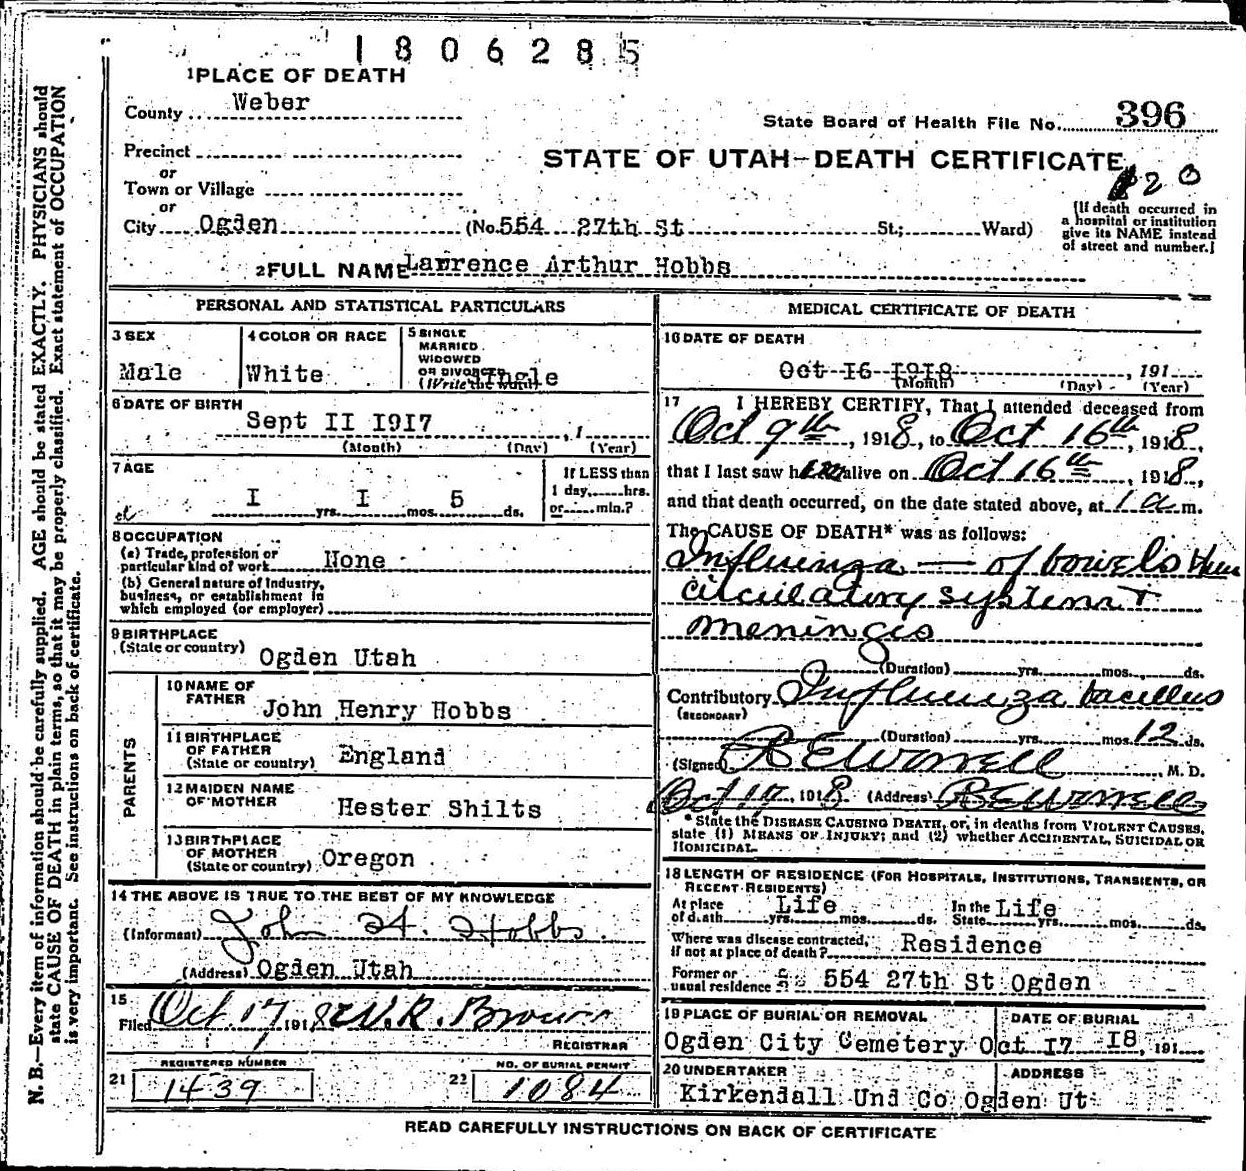 1806285
1 PLACE OF DEATH
County Weber
State Board of Health File No. 396
Precinct
or
STATE OF UTAH—DEATH CERTIFICATE
Town or Village
or
120
City Ogden (No. 554 27th St St.; Ward)
(If death occurred in
a hospital or institution
give its NAME instead
of street and number.)
2 FULL NAME Lawrence Arthur Hobbs
N. B.—Every item of information should be carefully supplied. AGE should be stated EXACTLY. PHYSICIANS should
state CAUSE OF DEATH in plain terms, so that it may be properly classified. Exact statement of OCCUPATION
is very important. See instructions on back of certificate.
PERSONAL AND STATISTICAL PARTICULARS
3 SEX
Male
4 COLOR OR RACE
White
5 SINGLE
MARRIED
WIDOWED
OR DIVORCED
(Write the word) Single
6 DATE OF BIRTH
Sept II I9I7 , 1
(Month) (Day) (Year)
7 AGE
I yrs. I mos. 5 ds.
If LESS than
1 day, hrs.
or min.?
8 OCCUPATION
(a) Trade, profession or
particular kind of work None
(b) General nature of Industry,
business, or establishment in
which employed (or employer)
9 BIRTHPLACE
(State or country) Ogden Utah
PARENTS
10 NAME OF
FATHER John Henry Hobbs
11 BIRTHPLACE
OF FATHER
(State or country) England
12 MAIDEN NAME
OF MOTHER Hester Shilts
13 BIRTHPLACE
OF MOTHER
(State or country) Oregon
14 THE ABOVE IS TRUE TO THE BEST OF MY KNOWLEDGE
(Informant) John H. Hobbs.
(Address) Ogden Utah
15
Filed Oct. 17 1918 W. R. Brown
REGISTRAR
REGISTERED NUMBER
21 1439
NO. OF BURIAL PERMIT
22 1084
MEDICAL CERTIFICATE OF DEATH
16 DATE OF DEATH
Oct I6 I9I8 , 191
(Month) (Day) (Year)
17 I HEREBY CERTIFY, That I attended deceased from
Oct 9th, 1918, to Oct 16th, 1918,
that I last saw him alive on Oct 16th, 1918,
and that death occurred, on the date stated above, at 1 a m.
The CAUSE OF DEATH* was as follows:
Influenza — of bowels then
circulatory system &
meninges
(Duration) yrs. mos. ds.
Contributory Influenza bacillus
(SECONDARY)
(Duration) yrs. mos. 12 ds.
(Signed) R E Worrell, M. D.
Oct 17, 1918 (Address) R E Worrell
* State the DISEASE CAUSING DEATH, or, in deaths from VIOLENT CAUSES,
state (1) MEANS OF INJURY; and (2) whether ACCIDENTAL, SUICIDAL OR
HOMICIDAL.
18 LENGTH OF RESIDENCE (FOR HOSPITALS, INSTITUTIONS, TRANSIENTS, OR
RECENT RESIDENTS)
At place
of death Life yrs. mos. ds.
In the
State Life yrs. mos. ds.
Where was disease contracted,
if not at place of death? Residence
Former or
usual residence 554 27th St Ogden
19 PLACE OF BURIAL OR REMOVAL
Ogden City Cemetery
DATE OF BURIAL
Oct I7 I8, 191
20 UNDERTAKER
Kirkendall Und Co
ADDRESS
Ogden Ut
READ CAREFULLY INSTRUCTIONS ON BACK OF CERTIFICATE